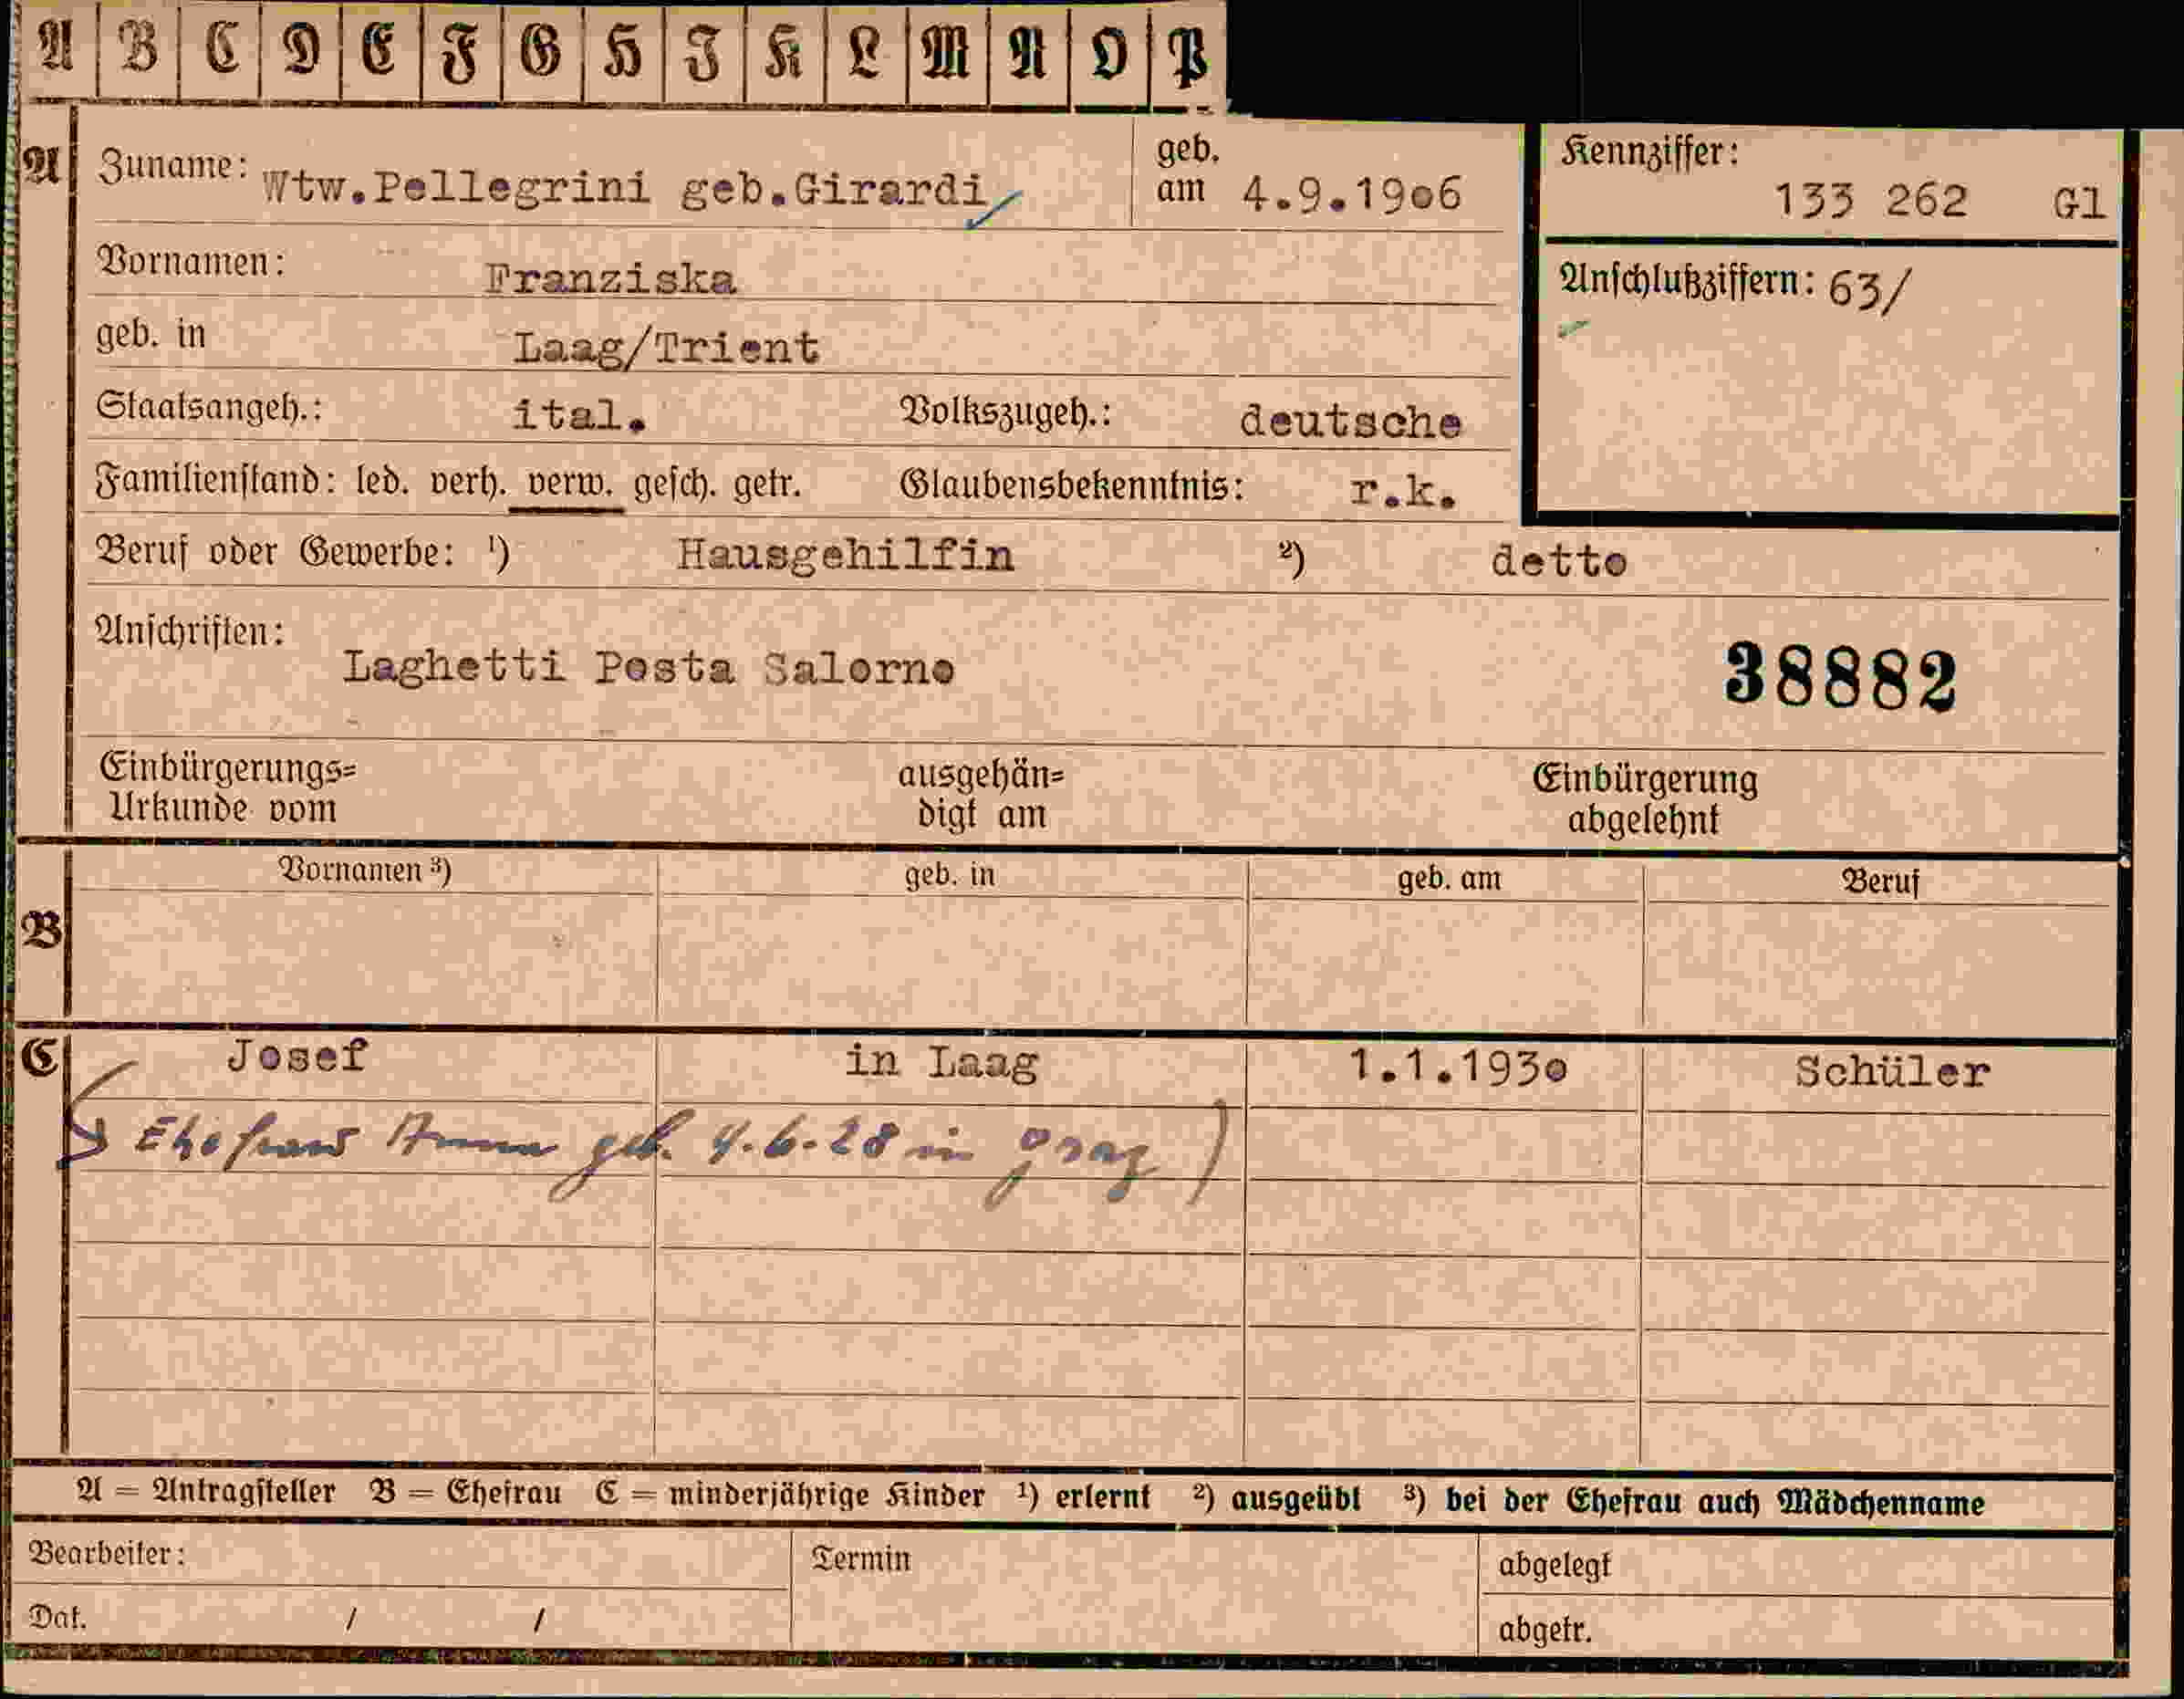 A B C D E F G H I K L M N O P
A Zuname: Wtw.Pellegrini geb.Girardi geb. am 4.9.1906 Kennziffer: 133 262 Gl
Vornamen: Franziska Anschlußziffern: 63/
geb. in Laag/Trient
Staatsangeh.: ital. Volkszugeh.: deutsche
Familienstand: led. verh. verw. gesch. getr. Glaubensbekenntnis: r.k.
Beruf oder Gewerbe: ¹) Hausgehilfin ²) detto
Anschriften: Laghetti Posta Salorno 38882
Einbürgerungs= ausgehän= Einbürgerung
Urkunde vom digt am abgelehnt
Vornamen ³) geb. in geb. am Beruf
B
C Josef in Laag 1.1.1930 Schüler
Ehefrau Anna geb. 4.6.28 in Prag )
A = Antragsteller B = Ehefrau C = minderjährige Kinder ¹) erlernt ²) ausgeübt ³) bei der Ehefrau auch Mädchenname
Bearbeiter: Termin abgelegt
Dat. / / abgetr.